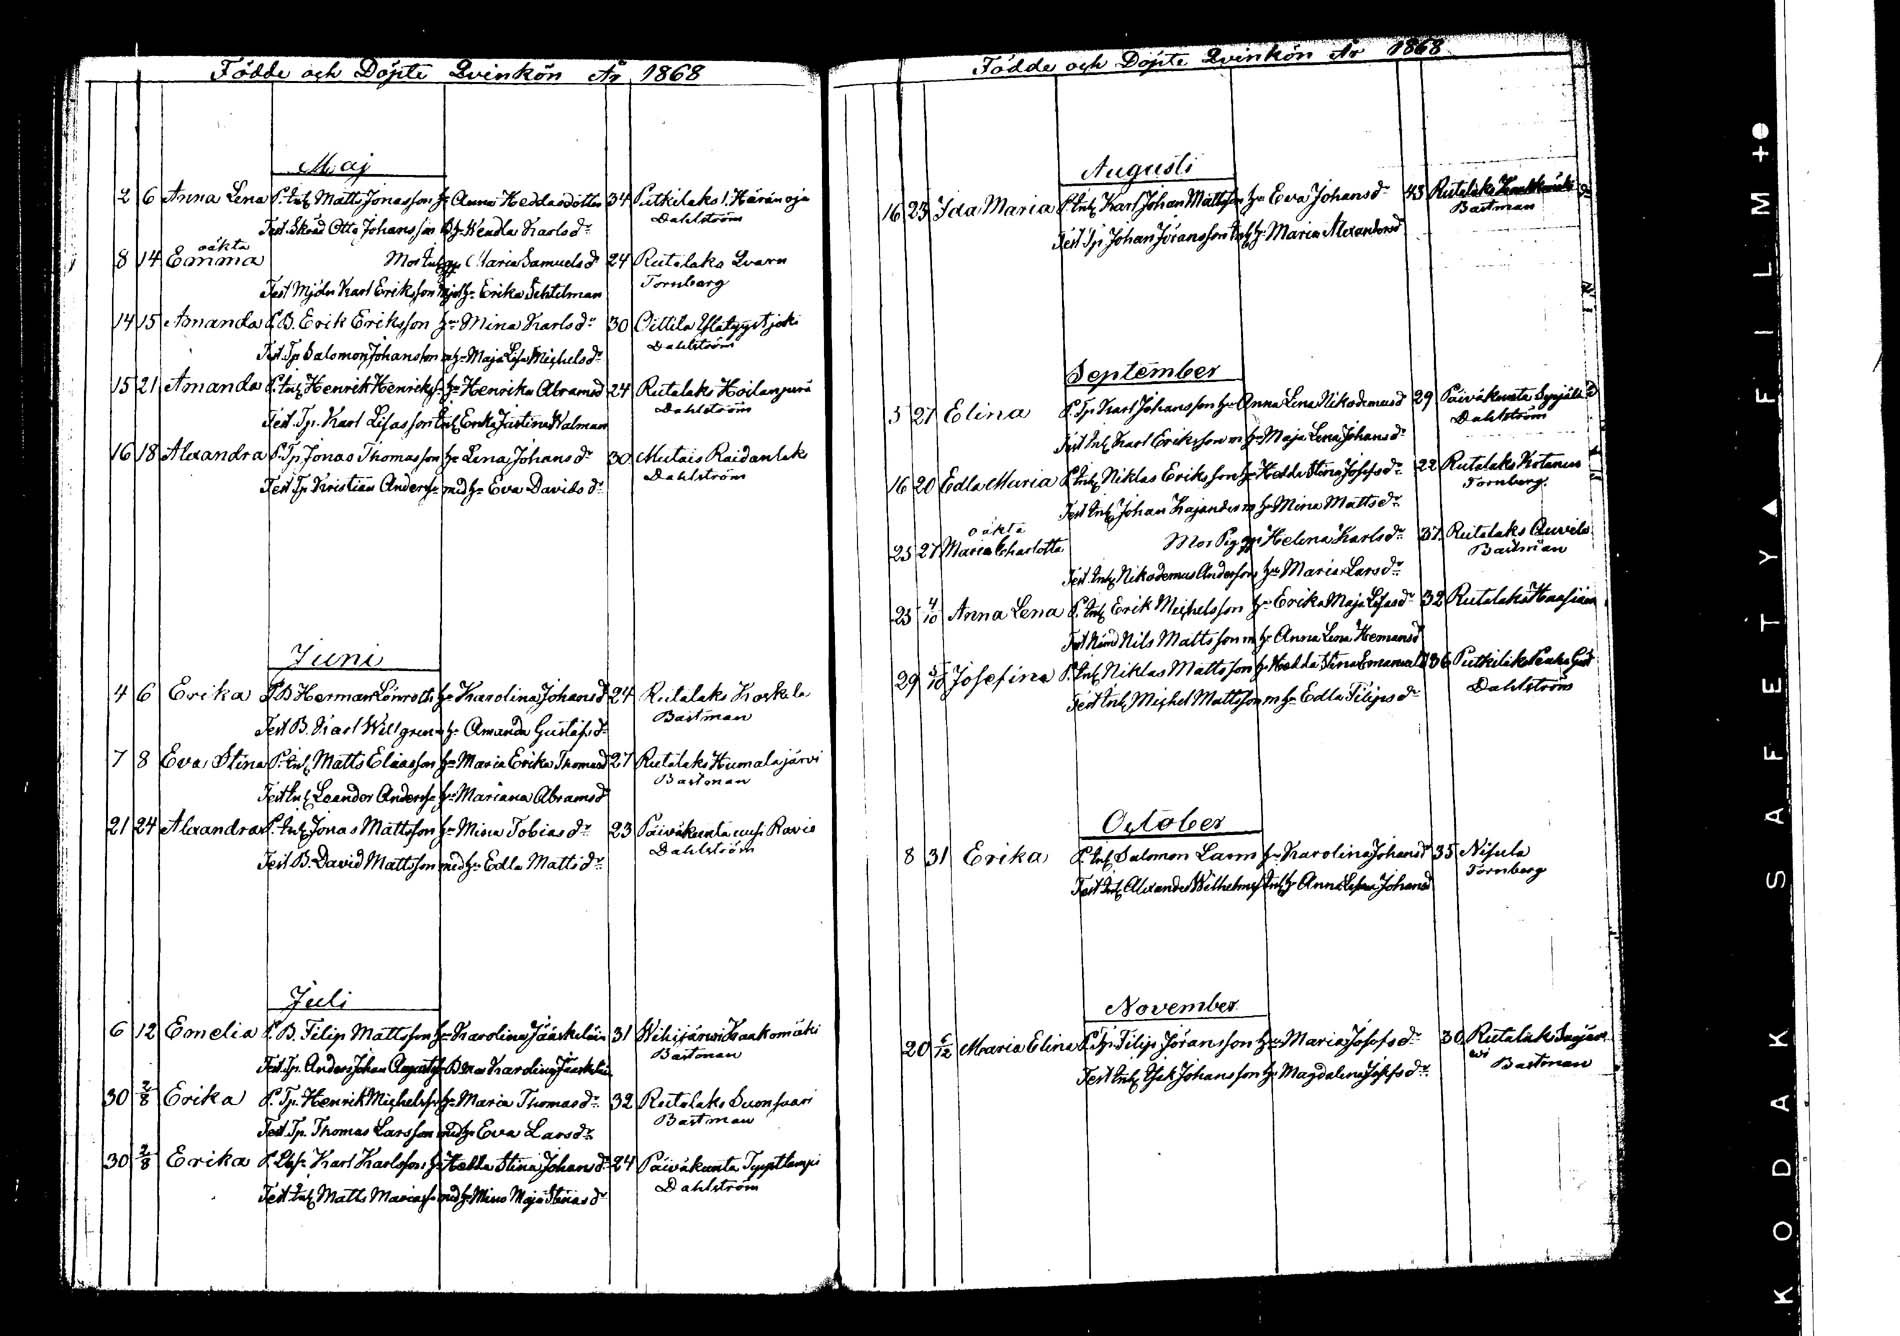 Födde och Döpte Qvinkön År 1868
Maj
2 6 Anna Lena P. Inh. Matts Jonasson h. Anna Heddasdotter 34 Putkilaks l. Häränoja
Dahlström
Test. Skräd Otto Johansson h. Wendla Karlsdr
oäkta
8 14 Emma Mor Inh. Maria Samuelsdr 24 Rutalaks Qvarn
Tornberg
Test Mjöln Karl Eriksson h. Erika Schtelman
14 15 Amanda P. B. Erik Eriksson h. Mina Karlsdr 30 Oittila
Dahlström
Test. Tp Salomon Johansson m h. Maja Lisa Michelsdr
15 21 Amanda P. Inh. Henrik Henriks. h. Henrika Abramsd 24 Rutalaks Hoilanperä
Dahlström
Test. Tp. Karl Lisasson Inh. Erika Justina Walman
16 18 Alexandra P. Tp. Jonas Thomasson h. Lena Johansdr 30 Mutais Raidanlaks
Dahlström
Test Tp Kristian Anders. med h. Eva Davidsdr
Juni
4 6 Erika P. B Herman Lönroth h. Karolina Johansd 24 Rutalaks Koskela
Bastman
Test B. Karl Willgren m h. Amanda Gustafsdr
7 8 Eva Stina P. Inh. Matts Eliasson h. Maria Erika Thomasd 27 Rutalaks Humalajärvi
Bastman
Test Inh. Leander Anders. h. Mariana Abramsd
21 24 Alexandra P. Inh. Jonas Mattsson h. Mina Tobiasdr 23 Päiväkunta uusi Ravio
Dahlström
Test B. David Mattsson med h. Edla Mattsdr
Juli
6 12 Emelia P. B. Filip Mattsson h. Karolina Jääskeläin 31 Wihijärwi Kaakomäki
Bastman
Test. Tp. Anders Johan h. Karolina Jääskeläin
30 2/8 Erika P. Tp. Henrik Michelss. h. Maria Thomasdr 32 Rutalaks Suonsaari
Bastman
Test. Tp. Thomas Larsson med h. Eva Larsdr
30 2/8 Erika P. Karl Karlsson h. Hedda Stina Johansdr 24 Päiväkunta Typptlampi
Dahlström
Test. Inh. Matts Mariass. med h. Maja Stinasdr
Födde och Döpte Qvinkön År 1868
Augusti
16 23 Ida Maria P. Inh. Karl Johan Mattson h. Eva Johansdr 43 Rutalaks
Bastman
Test Tp Johan Jöransson Inh. h. Maria Alexandersd
September
5 27 Elina P. Tp. Karl Johansson h. Anna Lena Nikodemusd 29 Päiväkunta
Dahlström
Test Inh. Karl Eriksson m h. Maja Lena Johansdr
16 20 Edla Maria P. Inh. Niklas Eriksson h. Hedda Stina Josefsdr 22 Rutalaks Kotanen
Tornberg
Test Inh. Johan Kajander m h. Mina Mattsdr
oäkta
25 27 Maria Charlotta Mor Pig. Helena Karlsdr 37 Rutalaks Auvila
Bastman
Test Inh. Nikodemus Anderson h. Maria Larsdr
25 4/10 Anna Lena P. Inh. Erik Michelsson h. Erika Maja Lisasdr 32 Rutalaks Haasiam
Test Nämd Nils Mattsson m h. Anna Lena Hemansdr
29 5/10 Josefina P. Inh. Niklas Mattsson h. Hedda Stina Emanuelsd 36 Putkilaks
Dahlström
Test Inh. Michel Mattsson m h. Edla Filipsdr
October
8 31 Erika P. Inh. Salomon Lamm h. Karolina Johansdr 35 Nisula
Tornberg
Test Inh. Alexander Wilhelms. Inh. h. Anna Lisa Johansd
November
20 6/12 Maria Elina P. Tp. Filip Jöransson h. Maria Josefsdr 30 Rutalaks Suojär
wi Bastman
Test Inh. Isak Johansson h. Magdalena Josefsdr
KODAK SAFETY FILM